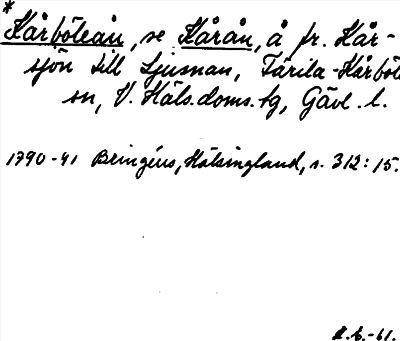 *
Kårböleån, se Kårån, å fr. Kår-
sjön till Ljusnan, Färila-Kårböle
sn, V. Häls. doms. tg, Gävl. l.
1790-91 Bringéus, Hälsingland, s. 312:15.
-61.